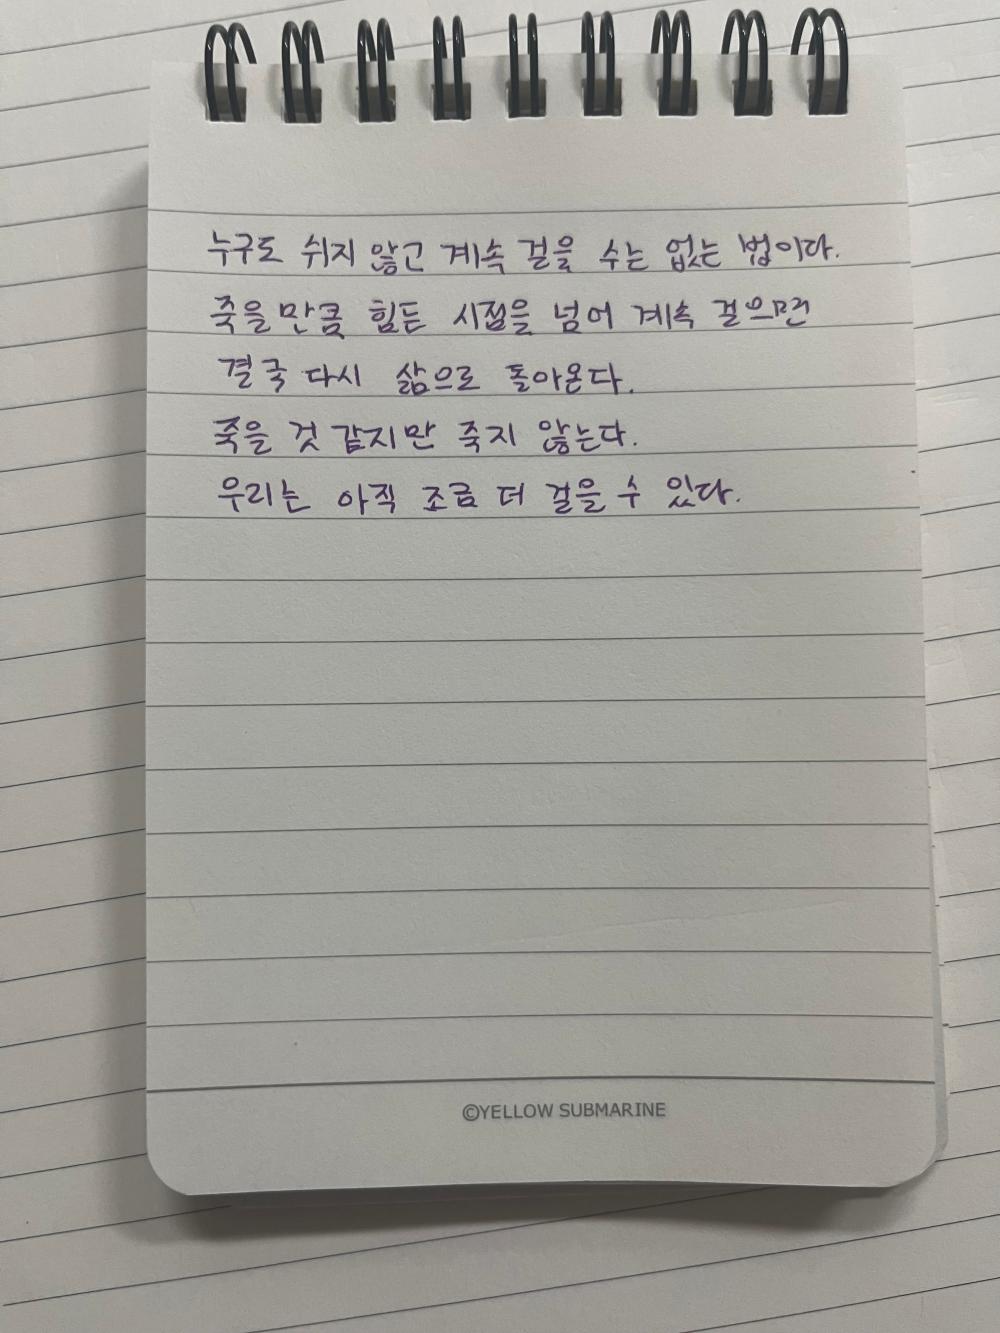 누구도 쉬지 않고 계속 걸을 수는 없는 법이다.
죽을만큼 힘든 시점을 넘어 계속 걸으면
결국 다시 삶으로 돌아온다.
죽을 것 같지만 죽지 않는다.
우리는 아직 조금 더 걸을 수 있다.
©YELLOW SUBMARINE